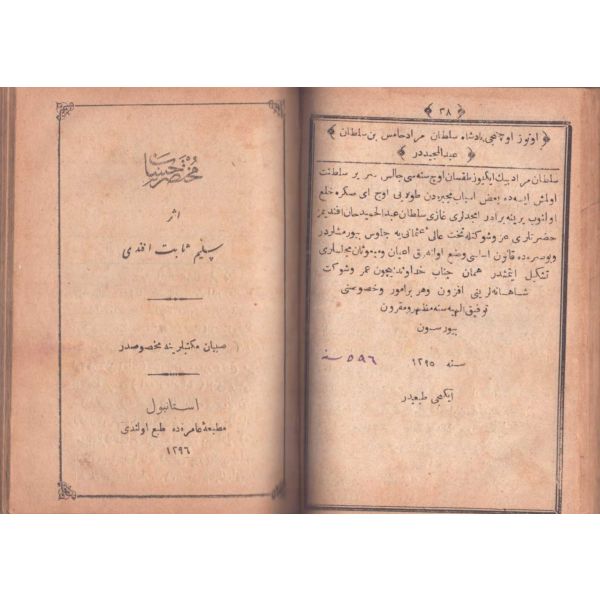 ﴿ ٣٨ ﴾
﴿ اوتوز اوچنجی پادشاه سلطان مراد خامس بن سلطان ﴾
﴿ عبدالمجیددر ﴾
سلطان مراد بیك ایکیوز طقسان اوچ سنه سی جالس سریر سلطنت
اولمش ایسه ده بعض اسباب مجبره دن طولایی اوچ ای صکره خلع
اولنوب یرینه برادر امجدلری غازی سلطان عبدالحمید خان افندیمز
حضرتلری عز وشوکتله تخت عالی عثمانی یه جلوس بیورمشلردر
وبوصره ده قانون اساسی وضع اولنه رق اعیان ومبعوثان مجلسلری
تشکیل ایتمشدر همان جناب خداوند بیچون عمر وشوکت
شاهانه لرینی افزون وهر برامور وخصوصنی
توفیق الهیه سنه مظهر ومقرون
بیورسون
سنه ١٢٩٥
سنه ٥٩٦
ایکنجی طبعیدر
مختصر حساب
اثر
سلیم ثابت افندی
صبیان مکتبلرینه مخصوصدر
استانبول
مطبعهٔ عامره ده طبع اولندی
١٢٩٦